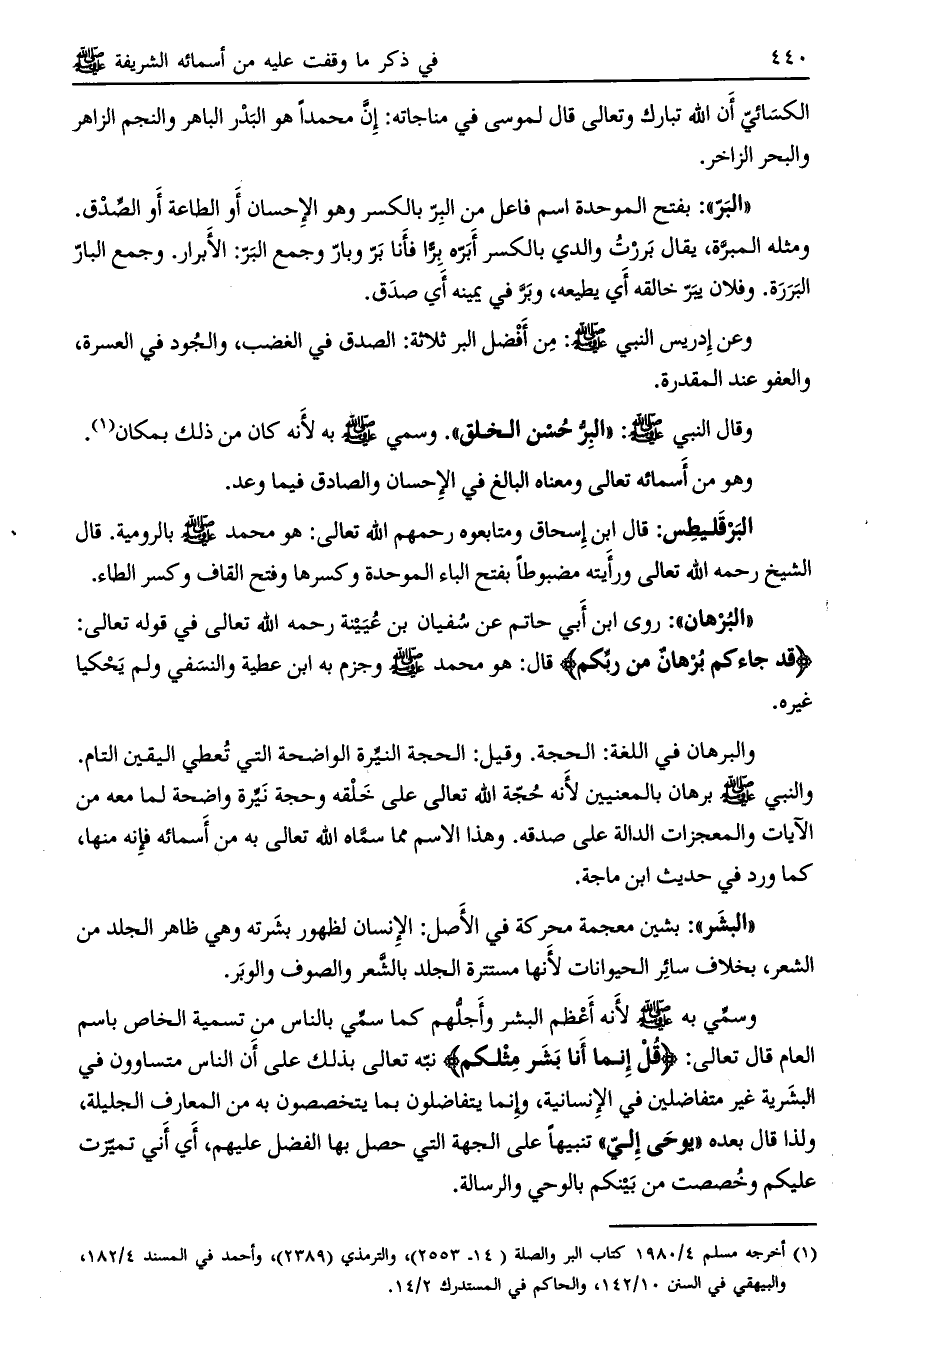 ٤٤٠ في ذكر ما وقفت عليه من أسمائه الشريفة ﷺ
الكسَائيّ أَن الله تبارك وتعالى قال لموسى في مناجاته: إِنَّ محمداً هو البَدْر الباهر والنجم الزاهر
والبحر الزاخر.
«البَرّ»: بفتح الموحدة اسم فاعل من البِرّ بالكسر وهو الإِحسان أَو الطاعة أَو الصِّدْق.
ومثله المبرَّة، يقال بَررْتُ والدي بالكسر أَبَرّه بِرًّا فأَنا بَرّ وبارّ وجمع البَرّ: الأَبرار. وجمع البارّ
البَرَرَة. وفلان يبَرّ خالقه أَي يطيعه، وبَرَّ في يمينه أَي صدَق.
وعن إِدريس النبي ﷺ: مِن أَفْضل البر ثلاثة: الصدق في الغضب، والجُود في العسرة،
والعفو عند المقدرة.
وقال النبي ﷺ: «البِرُّ حُسْن الخلق». وسمي ﷺ به لأَنه كان من ذلك بمكان(١).
وهو من أَسمائه تعالى ومعناه البالغ في الإِحسان والصادق فيما وعد.
البَرْقَليطِس: قال ابن إِسحاق ومتابعوه رحمهم الله تعالى: هو محمد ﷺ بالرومية. قال
الشيخ رحمه الله تعالى ورأَيته مضبوطاً بفتح الباء الموحدة وكسرها وفتح القاف وكسر الطاء.
«البُرْهان»: روى ابن أَبي حاتم عن سُفيان بن عُيَيْنة رحمه الله تعالى في قوله تعالى:
﴿قد جاءكم بُرْهانٌ من ربِّكم﴾ قال: هو محمد ﷺ وجزم به ابن عطية والنسَفي ولم يَحْكيا
غيره.
والبرهان في اللغة: الحجة. وقيل: الحجة النيِّرة الواضحة التي تُعطي اليقين التام.
والنبي ﷺ برهان بالمعنيين لأَنه حُجّة الله تعالى على خَلْقه وحجة نَيِّرة واضحة لما معه من
الآيات والمعجزات الدالة على صدقه. وهذا الاسم مما سمَّاه الله تعالى به من أَسمائه فإِنه منها،
كما ورد في حديث ابن ماجة.
«البشَر»: بشين معجمة محركة في الأَصل: الإِنسان لظهور بشَرته وهي ظاهر الجلد من
الشعر، بخلاف سائِر الحيوانات لأَنها مستترة الجلد بالشَّعر والصوف والوبَر.
وسمِّي به ﷺ لأَنه أَعْظم البشر وأَجلُّهم كما سمِّي بالناس من تسمية الخاص باسم
العام قال تعالى: ﴿قُلْ إِنما أَنا بَشَر مِثْلكم﴾ نبّه تعالى بذلك على أَن الناس متساوون في
البشَرية غير متفاضلين في الإِنسانية، وإِنما يتفاضلون بما يتخصصون به من المعارف الجليلة،
ولذا قال بعده «يوحَى إِليّ» تنبيهاً على الجهة التي حصل بها الفضل عليهم، أَي أَني تميّزت
عليكم وخُصصت من بَيْنكم بالوحي والرسالة.
(١) أخرجه مسلم ١٩٨٠/٤ كتاب البر والصلة (١٤ـ ٢٥٥٣)، والترمذي (٢٣٨٩)، وأحمد في المسند ١٨٢/٤،
والبيهقي في السنن ١٤٢/١٠، والحاكم في المستدرك ١٤/٢.